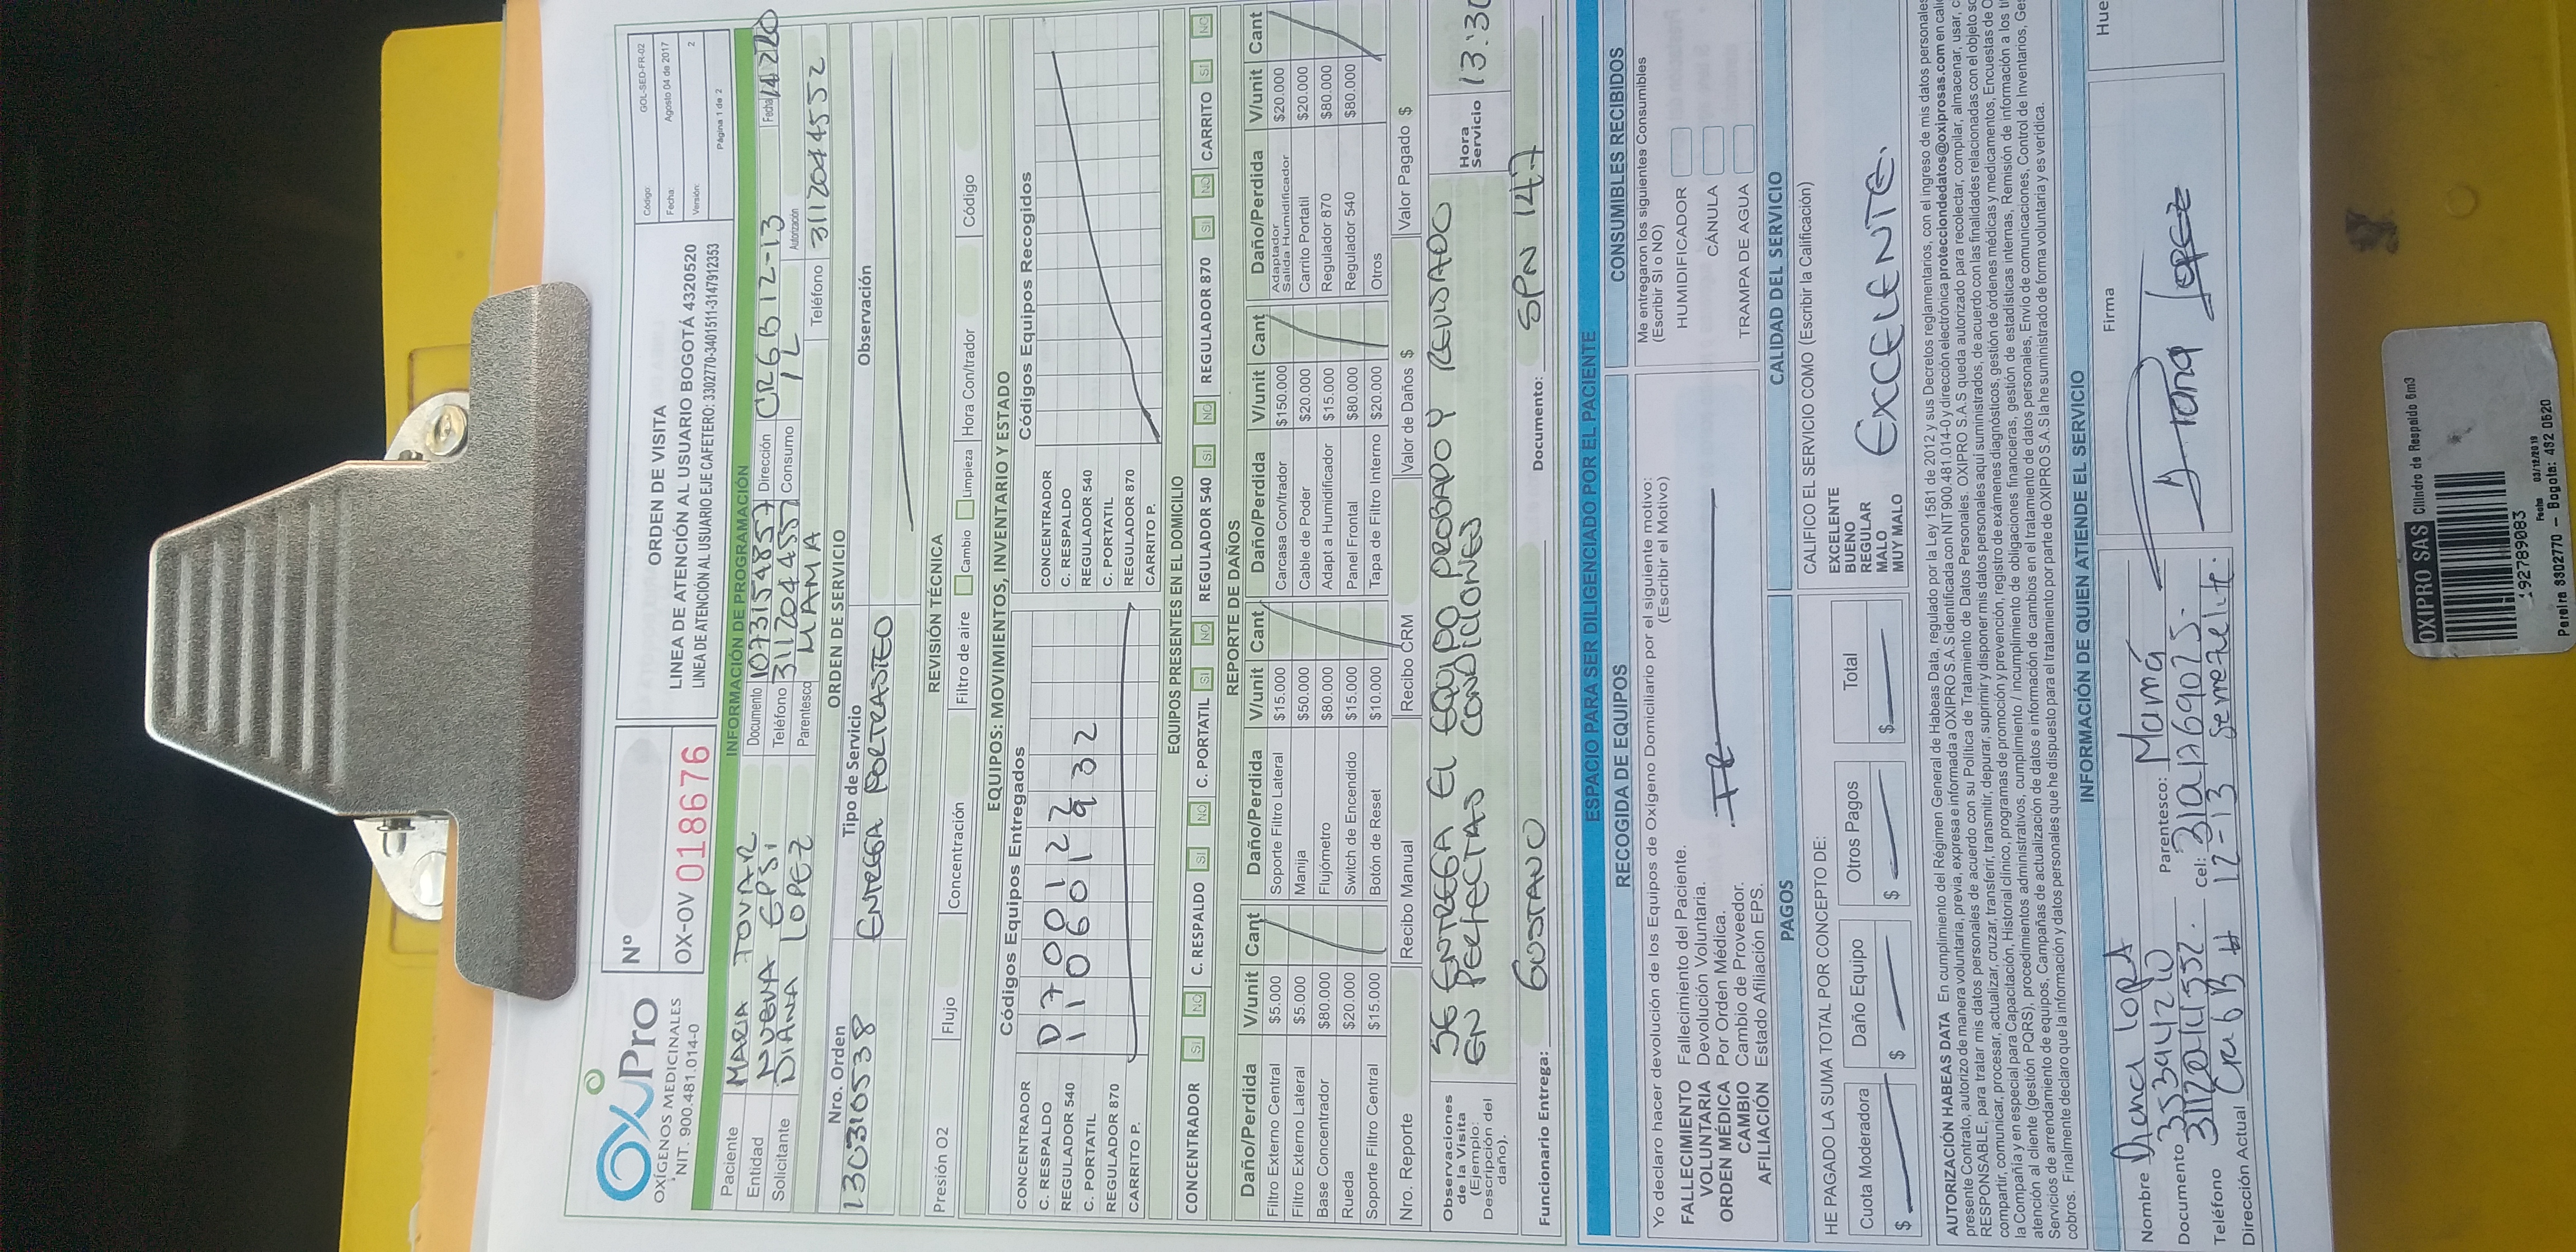 OxiPro
OXÍGENOS MEDICINALES
NIT. 900.481.014-0
Nº
OX-OV 018676
ORDEN DE VISITA
LINEA DE ATENCIÓN AL USUARIO BOGOTÁ 4320520
LINEA DE ATENCIÓN AL USUARIO EJE CAFETERO: 3302770-3401511-3147912353
Código: GOL-SED-FR-02
Fecha: Agosto 04 de 2017
Versión: 2
Página 1 de 2
INFORMACIÓN DE PROGRAMACIÓN
Paciente MARIA TOVAR Documento 1073154857 Dirección CR6B12-13 Fecha 14 2 20
Entidad NUEVA EPSi Teléfono 3112044557 Consumo 1L Autorización
Solicitante DIANA LOPEZ Parentesco MAMA Teléfono 3112044552
ORDEN DE SERVICIO
Nro. Orden Tipo de Servicio Observación
1303310538 ENTREGA PORTRASTEO
REVISIÓN TÉCNICA
Presión O2 Flujo Concentración Filtro de aire Cambio Limpieza Hora Con/trador Código
EQUIPOS: MOVIMIENTOS, INVENTARIO Y ESTADO
Códigos Equipos Entregados Códigos Equipos Recogidos
CONCENTRADOR CONCENTRADOR
C. RESPALDO D7001272 C. RESPALDO
REGULADOR 540 1106012932 REGULADOR 540
C. PORTATIL C. PORTATIL
REGULADOR 870 REGULADOR 870
CARRITO P. CARRITO P.
EQUIPOS PRESENTES EN EL DOMICILIO
CONCENTRADOR SI NO C. RESPALDO SI NO C. PORTATIL SI NO REGULADOR 540 SI NO REGULADOR 870 SI NO CARRITO SI NO
REPORTE DE DAÑOS
Daño/Perdida V/unit Cant Daño/Perdida V/unit Cant Daño/Perdida V/unit Cant Daño/Perdida V/unit Cant
Filtro Externo Central $5.000 Soporte Filtro Lateral $15.000 Carcasa Con/trador $150.000 Adaptador Salida Humidificador $20.000
Filtro Externo Lateral $5.000 Manija $50.000 Cable de Poder $20.000 Carrito Portatil $20.000
Base Concentrador $80.000 Flujómetro $80.000 Adapt a Humidificador $15.000 Regulador 870 $80.000
Rueda $20.000 Switch de Encendido $15.000 Panel Frontal $80.000 Regulador 540 $80.000
Soporte Filtro Central $15.000 Botón de Reset $10.000 Tapa de Filtro Interno $20.000 Otros
Nro. Reporte Recibo Manual Recibo CRM Valor de Daños $ Valor Pagado $
Observaciones de la Visita (Ejemplo: Descripción del daño).
SE ENTREGA EL EQUIPO PROBADO Y REVISADO
EN PERFECTAS CONDICIONES
Hora Servicio 13:30
Funcionario Entrega: GUSTAVO Documento: SPN 147
ESPACIO PARA SER DILIGENCIADO POR EL PACIENTE
RECOGIDA DE EQUIPOS
Yo declaro hacer devolución de los Equipos de Oxígeno Domiciliario por el siguiente motivo:
(Escribir el Motivo)
FALLECIMIENTO Fallecimiento del Paciente.
VOLUNTARIA Devolución Voluntaria.
ORDEN MÉDICA Por Orden Médica.
CAMBIO Cambio de Proveedor.
AFILIACIÓN Estado Afiliación EPS.
CONSUMIBLES RECIBIDOS
Me entregaron los siguientes Consumibles
(Escribir SI o NO)
HUMIDIFICADOR
CÁNULA
TRAMPA DE AGUA
PAGOS
HE PAGADO LA SUMA TOTAL POR CONCEPTO DE:
Cuota Moderadora Daño Equipo Otros Pagos Total
$ $ $ $
CALIDAD DEL SERVICIO
CALIFICO EL SERVICIO COMO (Escribir la Calificación)
EXCELENTE
BUENO
REGULAR
MALO
MUY MALO
EXCELENTE.
AUTORIZACIÓN HABEAS DATA En cumplimiento del Régimen General de Habeas Data, regulado por la Ley 1581 de 2012 y sus Decretos reglamentarios, con el ingreso de mis datos personales
presente Contrato, autorizo de manera voluntaria, previa, expresa e informada a OXIPRO S.A.S identificada con NIT 900.481.014-0 y dirección electrónica protecciondedatos@oxiprosas.com en cali
RESPONSABLE, para tratar mis datos personales de acuerdo con su Política de Tratamiento de Datos Personales. OXIPRO S.A.S queda autorizado para recolectar, compilar, almacenar, usar, c
compartir, comunicar, procesar, actualizar, cruzar, transferir, transmitir, depurar, suprimir y disponer mis datos personales aquí suministrados, de acuerdo con las finalidades relacionadas con el objeto so
la Compañía y en especial para Capacitación, Historial clínico, programas de promoción y prevención, registro de exámenes diagnósticos, gestión de órdenes médicas y medicamentos, Encuestas de
atención al cliente (gestión PQRS), procedimientos administrativos, cumplimiento / incumplimiento de obligaciones financieras, gestión de estadísticas internas, Remisión de información a los
Servicios de arrendamiento de equipos, Campañas de actualización de datos e información de cambios en el tratamiento de datos personales, Envío de comunicaciones, Control de Inventarios, Ges
cobros. Finalmente declaro que la información y datos personales que he dispuesto para el tratamiento por parte de OXIPRO S.A.S la he suministrado de forma voluntaria y es verídica.
INFORMACIÓN DE QUIEN ATIENDE EL SERVICIO
Nombre Diana lopez Parentesco: Mamá
Documento 35394210
Teléfono Cel:
Dirección Actual Cra 6 B # 12-13 serrezuelita.
Firma
Diana Lopez
Hue
OXIPRO SAS Cilindro de Respaldo 6m3
192789083
Fecha 03/12/2019
Pereira 3302770 – Bogota: 432 0520